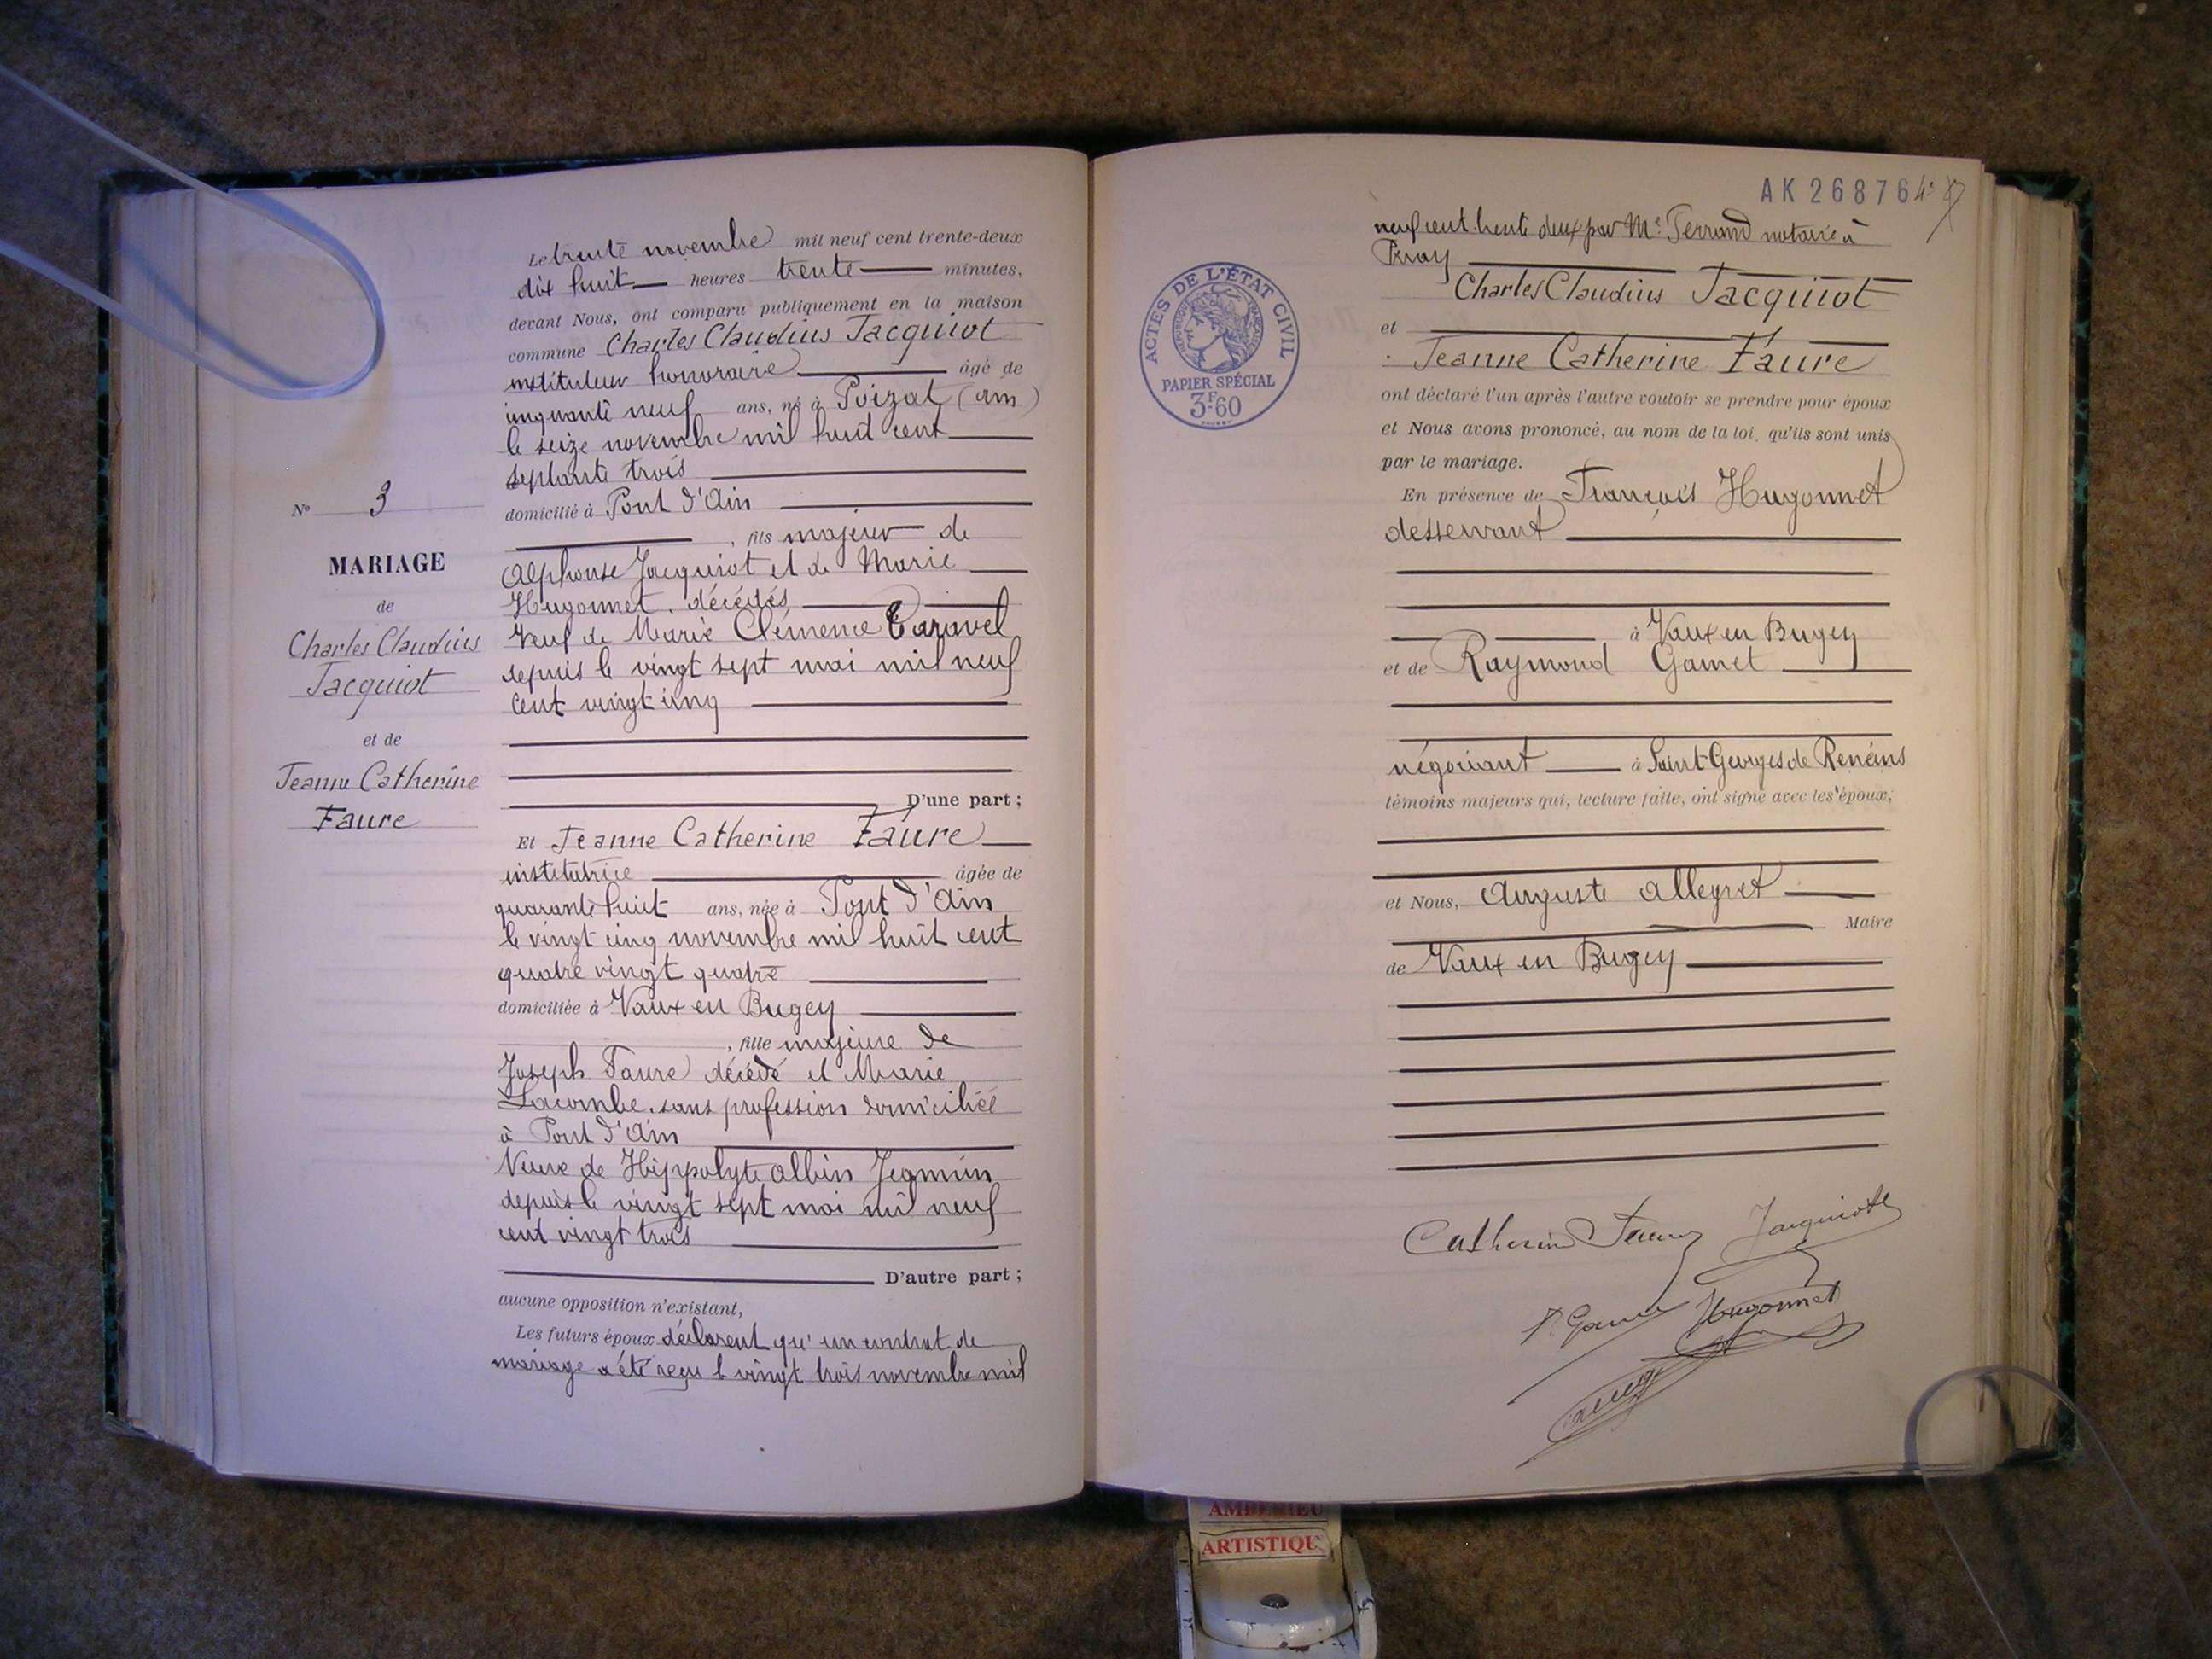 Le trente novembre mil neuf cent trente-deux
dix huit heures trente minutes,
devant Nous, ont comparu publiquement en la maison
commune Charles Claudius Jacquiot
instituteur honoraire âgé de
cinquante neuf ans, né à Poizat (Ain)
le seize novembre mil huit cent
septante trois
domicilié à Pont d'Ain
, fils majeur de
Alphonse Jacquiot et de Marie
Hugonnet, décédés
Veuf de Marie Clémence Caravel
depuis le vingt sept mai mil neuf
cent vingt cinq
D'une part ;
Et Jeanne Catherine Faure
institutrice âgée de
quarante huit ans, née à Pont d'Ain
le vingt cinq novembre mil huit cent
quatre vingt quatre
domiciliée à Vaux en Bugey
, fille majeure de
Joseph Faure décédé et Marie
Lacombe, sans profession domiciliée
à Pont d'Ain
Veuve de Hippolyte Albin
depuis le vingt sept mai mil neuf
cent vingt trois
D'autre part ;
aucune opposition n'existant,
Les futurs époux déclarent qu'un contrat de
mariage a été reçu le vingt trois novembre mil
N° 3
MARIAGE
de
Charles Claudius
Jacquiot
et de
Jeanne Catherine
Faure
AK 26876
neuf cent trente deux par Me Ferrand notaire à
Charles Claudius Jacquiot
et
Jeanne Catherine Faure
ont déclaré l'un après l'autre vouloir se prendre pour époux
et Nous avons prononcé, au nom de la loi, qu'ils sont unis
par le mariage.
En présence de François Hugonnet
desservant
à Vaux en Bugey
et de Raymond Gamet
négociant à Saint Georges de Reneins
témoins majeurs qui, lecture faite, ont signé avec les époux,
et Nous, Auguste Allegret
Maire
de Vaux en Bugey
Catherine Faure Jacquiot
R. Gamet Hugonnet
ACTES DE L'ÉTAT CIVIL
RÉPUBLIQUE FRANÇAISE
PAPIER SPÉCIAL
3F.60
AMBERIEU
ARTISTIQU